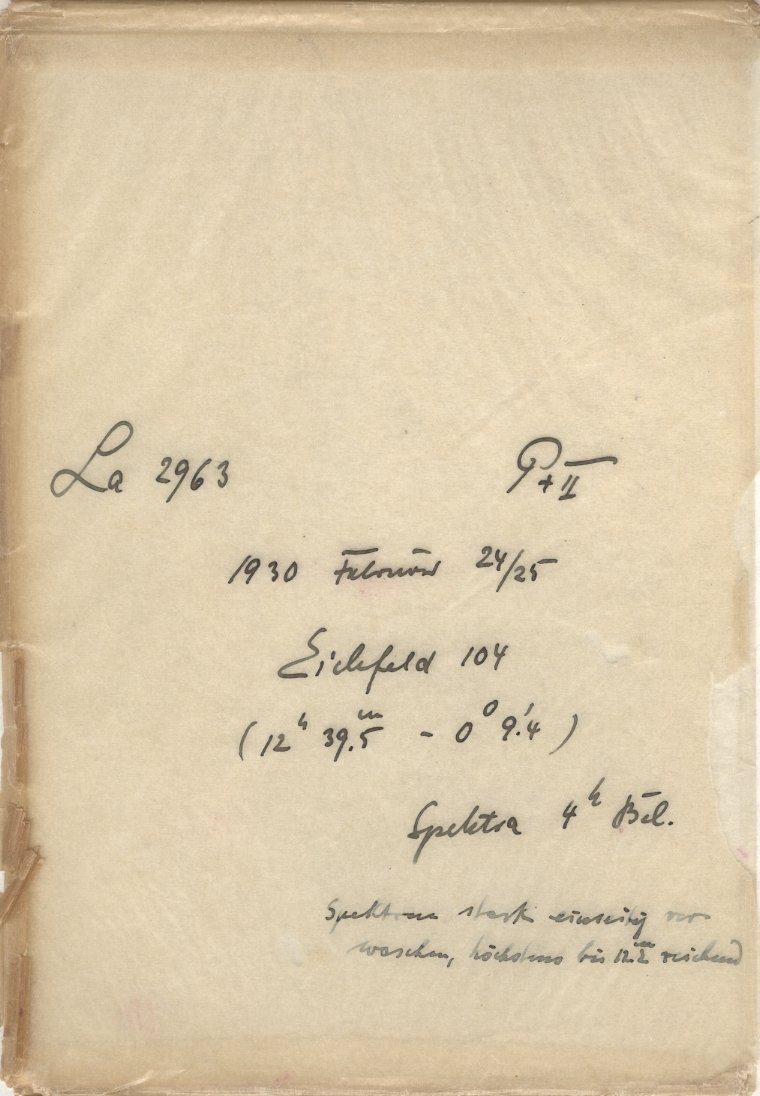 La 2963 P+II
1930 Februar 24/25
Eichfeld 104
(12ʰ 39.ᵐ5 - 0⁰ 9.'4)
Spektra 4ʰ Bel.
Spektren stark einseitig ver-
waschen, höchstens bis 12.ᵐ2 reichend